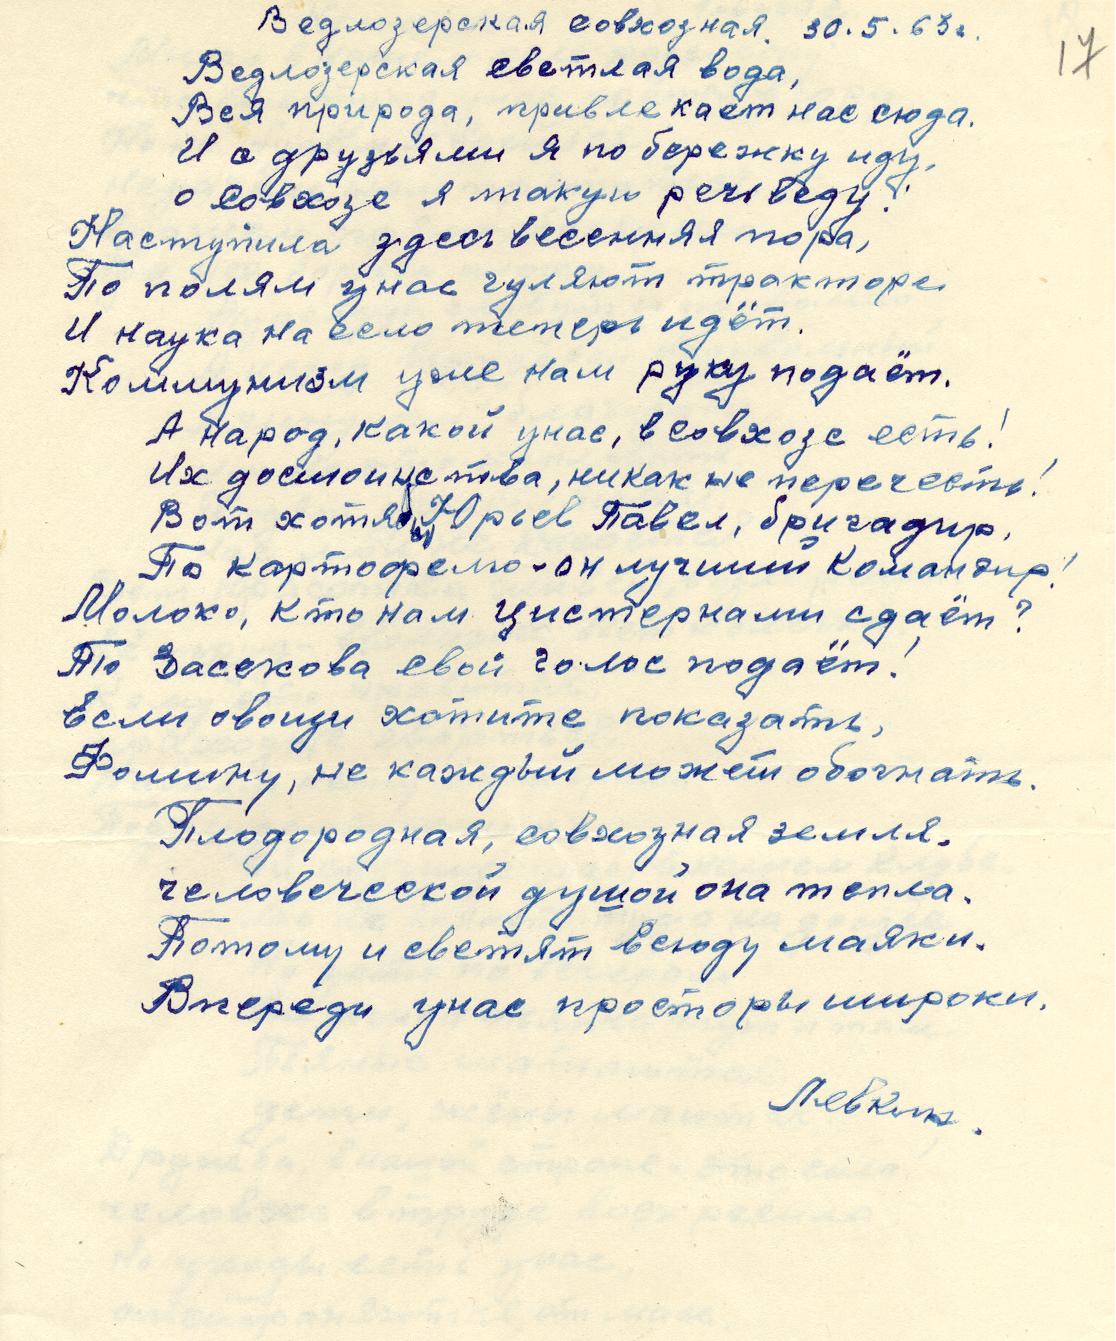 Ведлозерская совхозная. 30.5.63г.
17
Ведлозерская светлая вода,
Вся природа, привлекает нас сюда.
И с друзьями я по бережку иду,
о совхозе я такую речь веду!
Наступила здесь весенняя пора,
По полям унас гуляют трактора
И наука на село теперь идёт.
Коммунизм уже нам руку подаёт.
А народ, какой унас, в совхозе есть!
Их достоинства, никак не перечесть!
Вот хотя бы Юрьев Павел, бригадир,
По картофелю - он лучший командир!
Молоко, кто нам цистернами сдаёт?
То Засекова свой голос подаёт!
Если овощи хотите показать,
Фомину, не каждый может обогнать.
Плодородная, совхозная земля.
человеческой душой она тепла.
Потому и светят всюду маяки.
Впереди унас просторы широки.
Левкин.